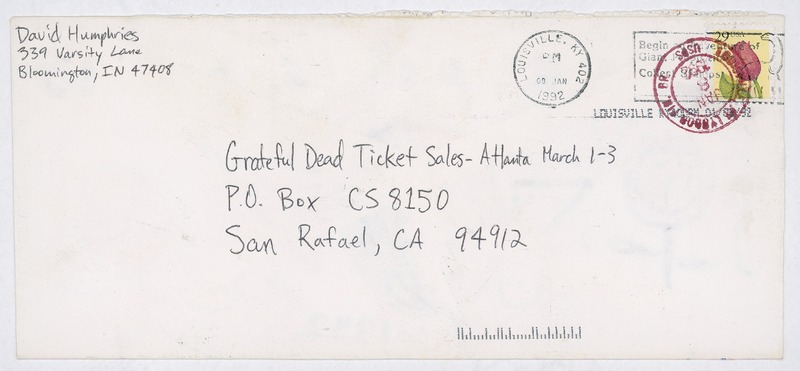 David Humphries
339 Varsity Lane
Bloomington, IN 47408
LOUISVILLE, KY 402
PM
JAN
1992
Begin
of
29 USA
USPS
JAN
LOUISVILLE
Grateful Dead Ticket Sales - Atlanta March 1-3
P.O. Box CS 8150
San Rafael, CA 94912